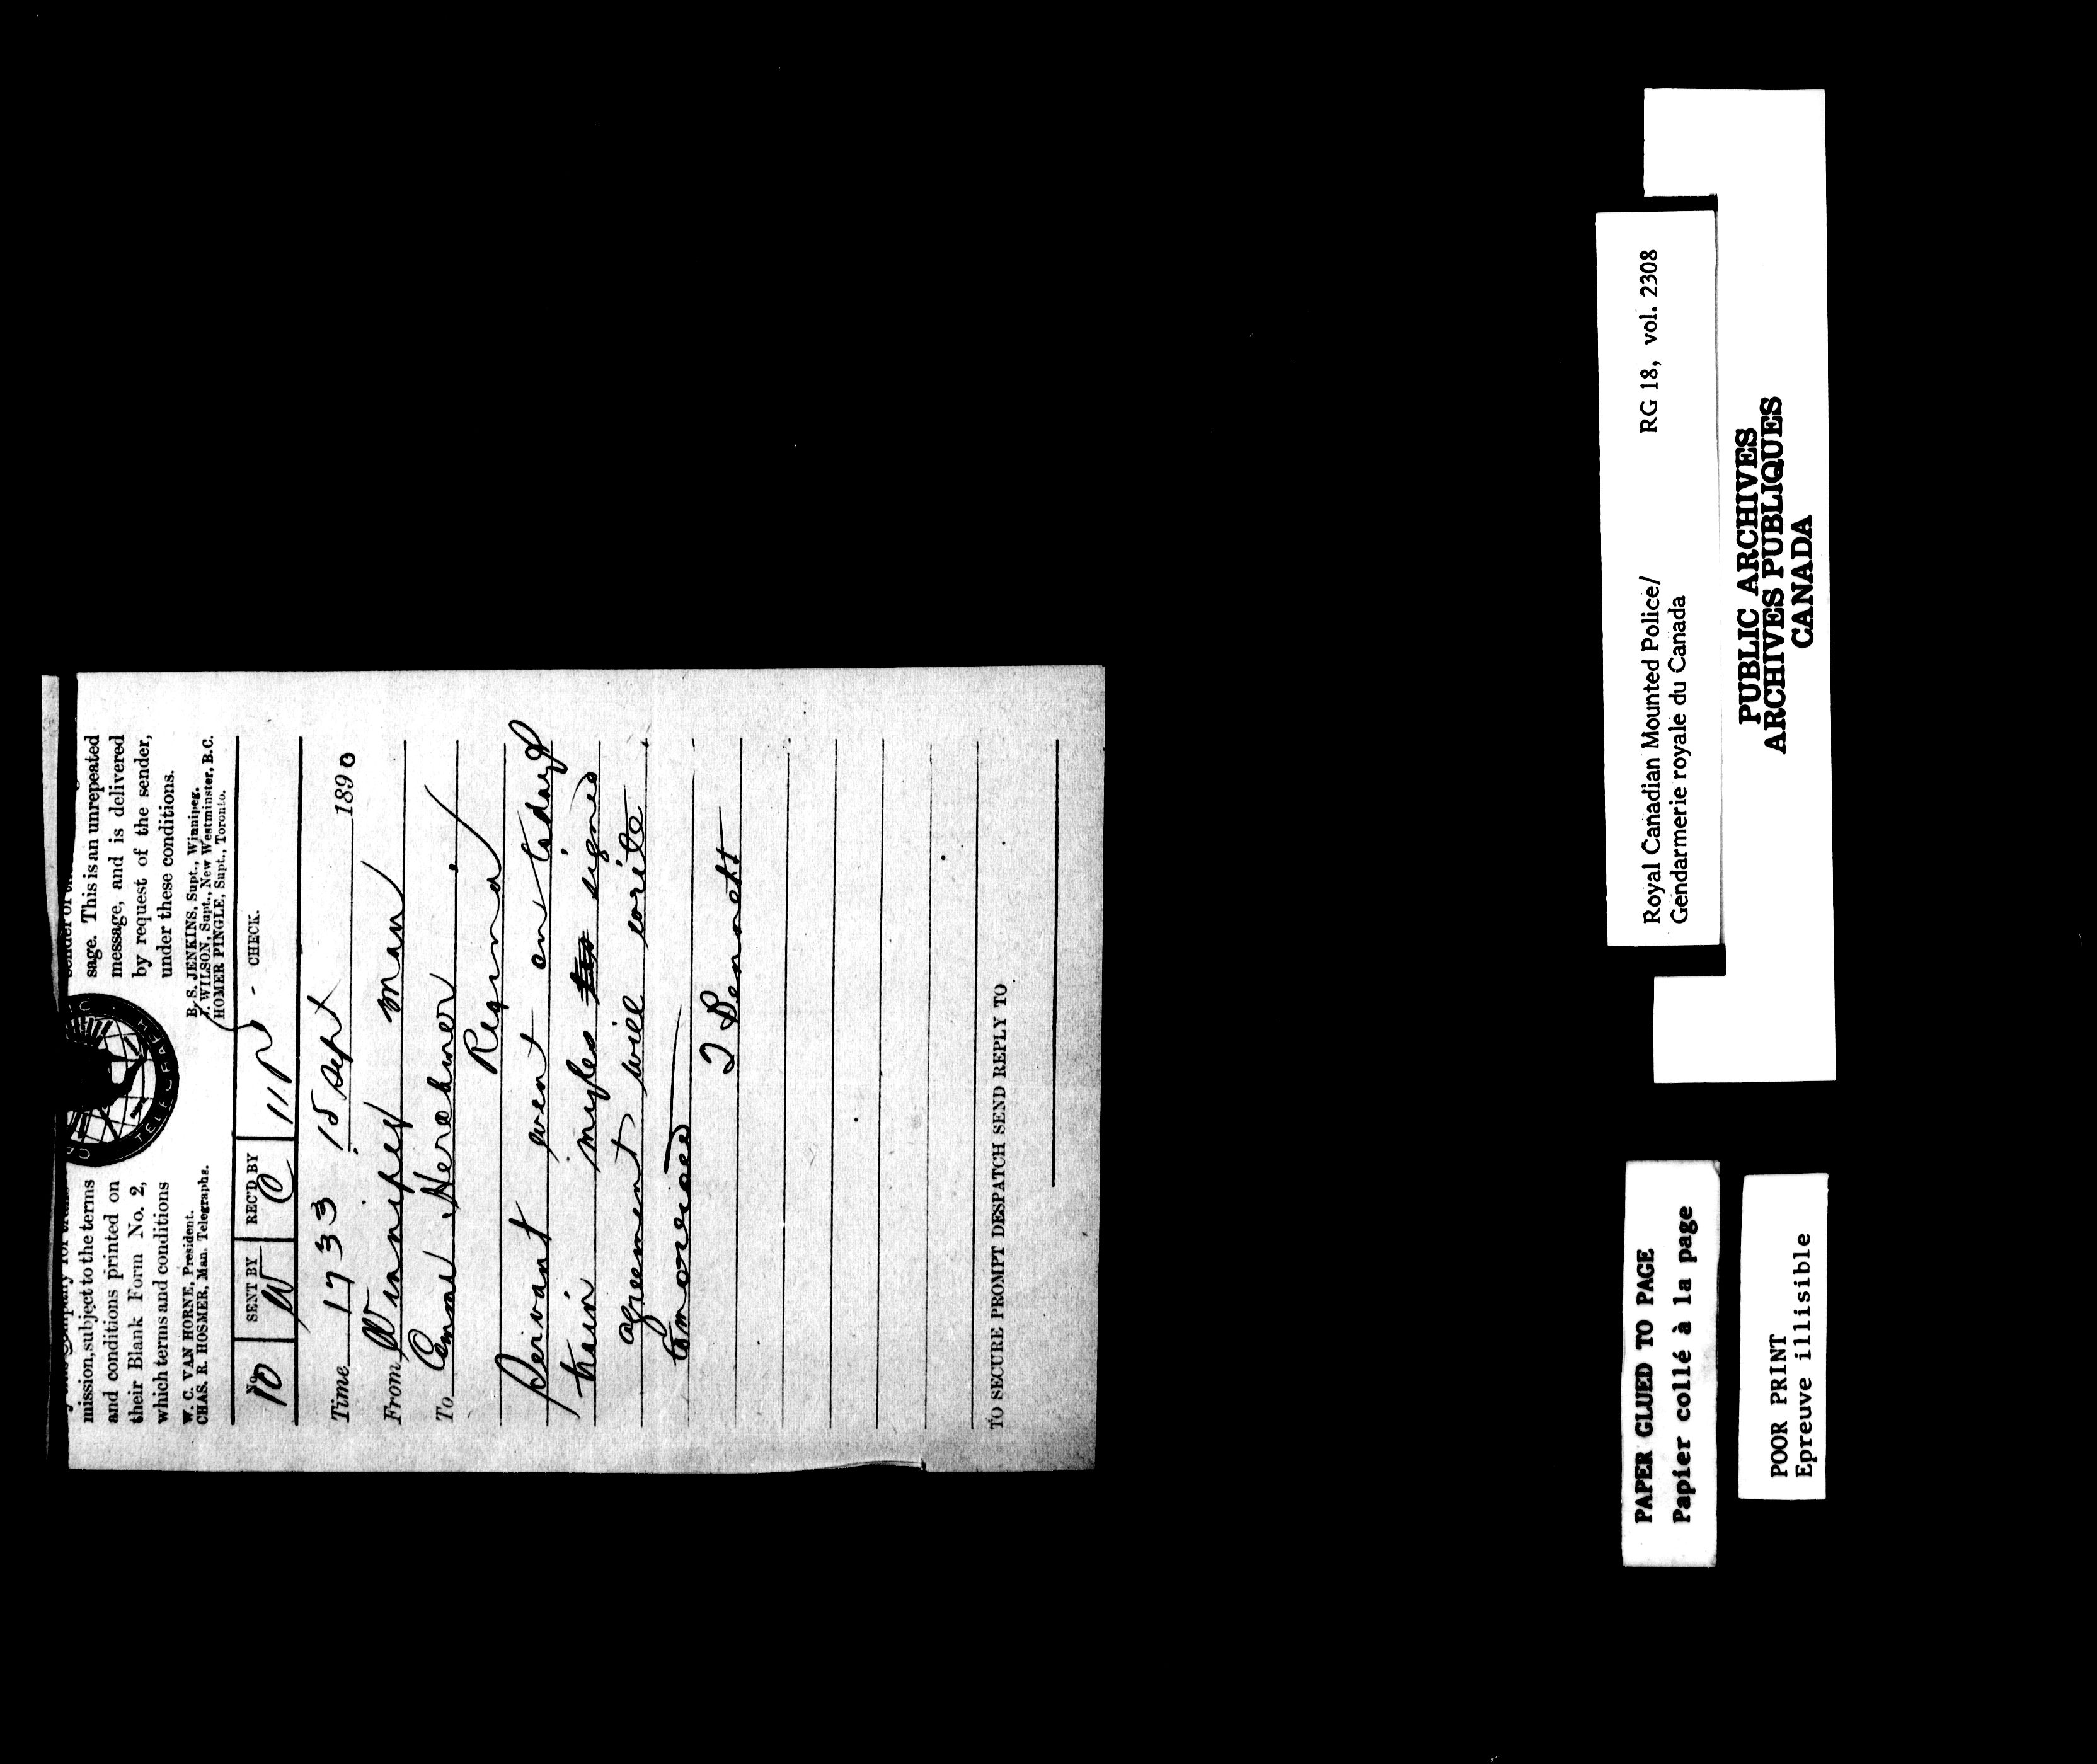 mission, subject to the terms
and conditions printed on
their Blank Form No. 2,
which terms and conditions
sage. This is an unrepeated
message, and is delivered
by request of the sender,
under these conditions.
TELEGRAPH
W. C. VAN HORNE, President.
CHAS. R. HOSMER, Man. Telegraphs.
B. S. JENKINS, Supt., Winnipeg.
J. WILSON, Supt., New Westminster, B.C.
HOMER PINGLE, Supt., Toronto.
No. SENT BY REC'D BY CHECK.
10 W C 11
Time 1733 15 Sept 1890
From Winnipeg Man
To Comr Herchmer
Regina
Servant went on todays
train myles signed
agreement will write
tomorrow
J Bennett
TO SECURE PROMPT DESPATCH SEND REPLY TO
Royal Canadian Mounted Police/ RG 18, vol. 2308
Gendarmerie royale du Canada
PUBLIC ARCHIVES
ARCHIVES PUBLIQUES
CANADA
PAPER GLUED TO PAGE
Papier collé à la page
POOR PRINT
Epreuve illisible